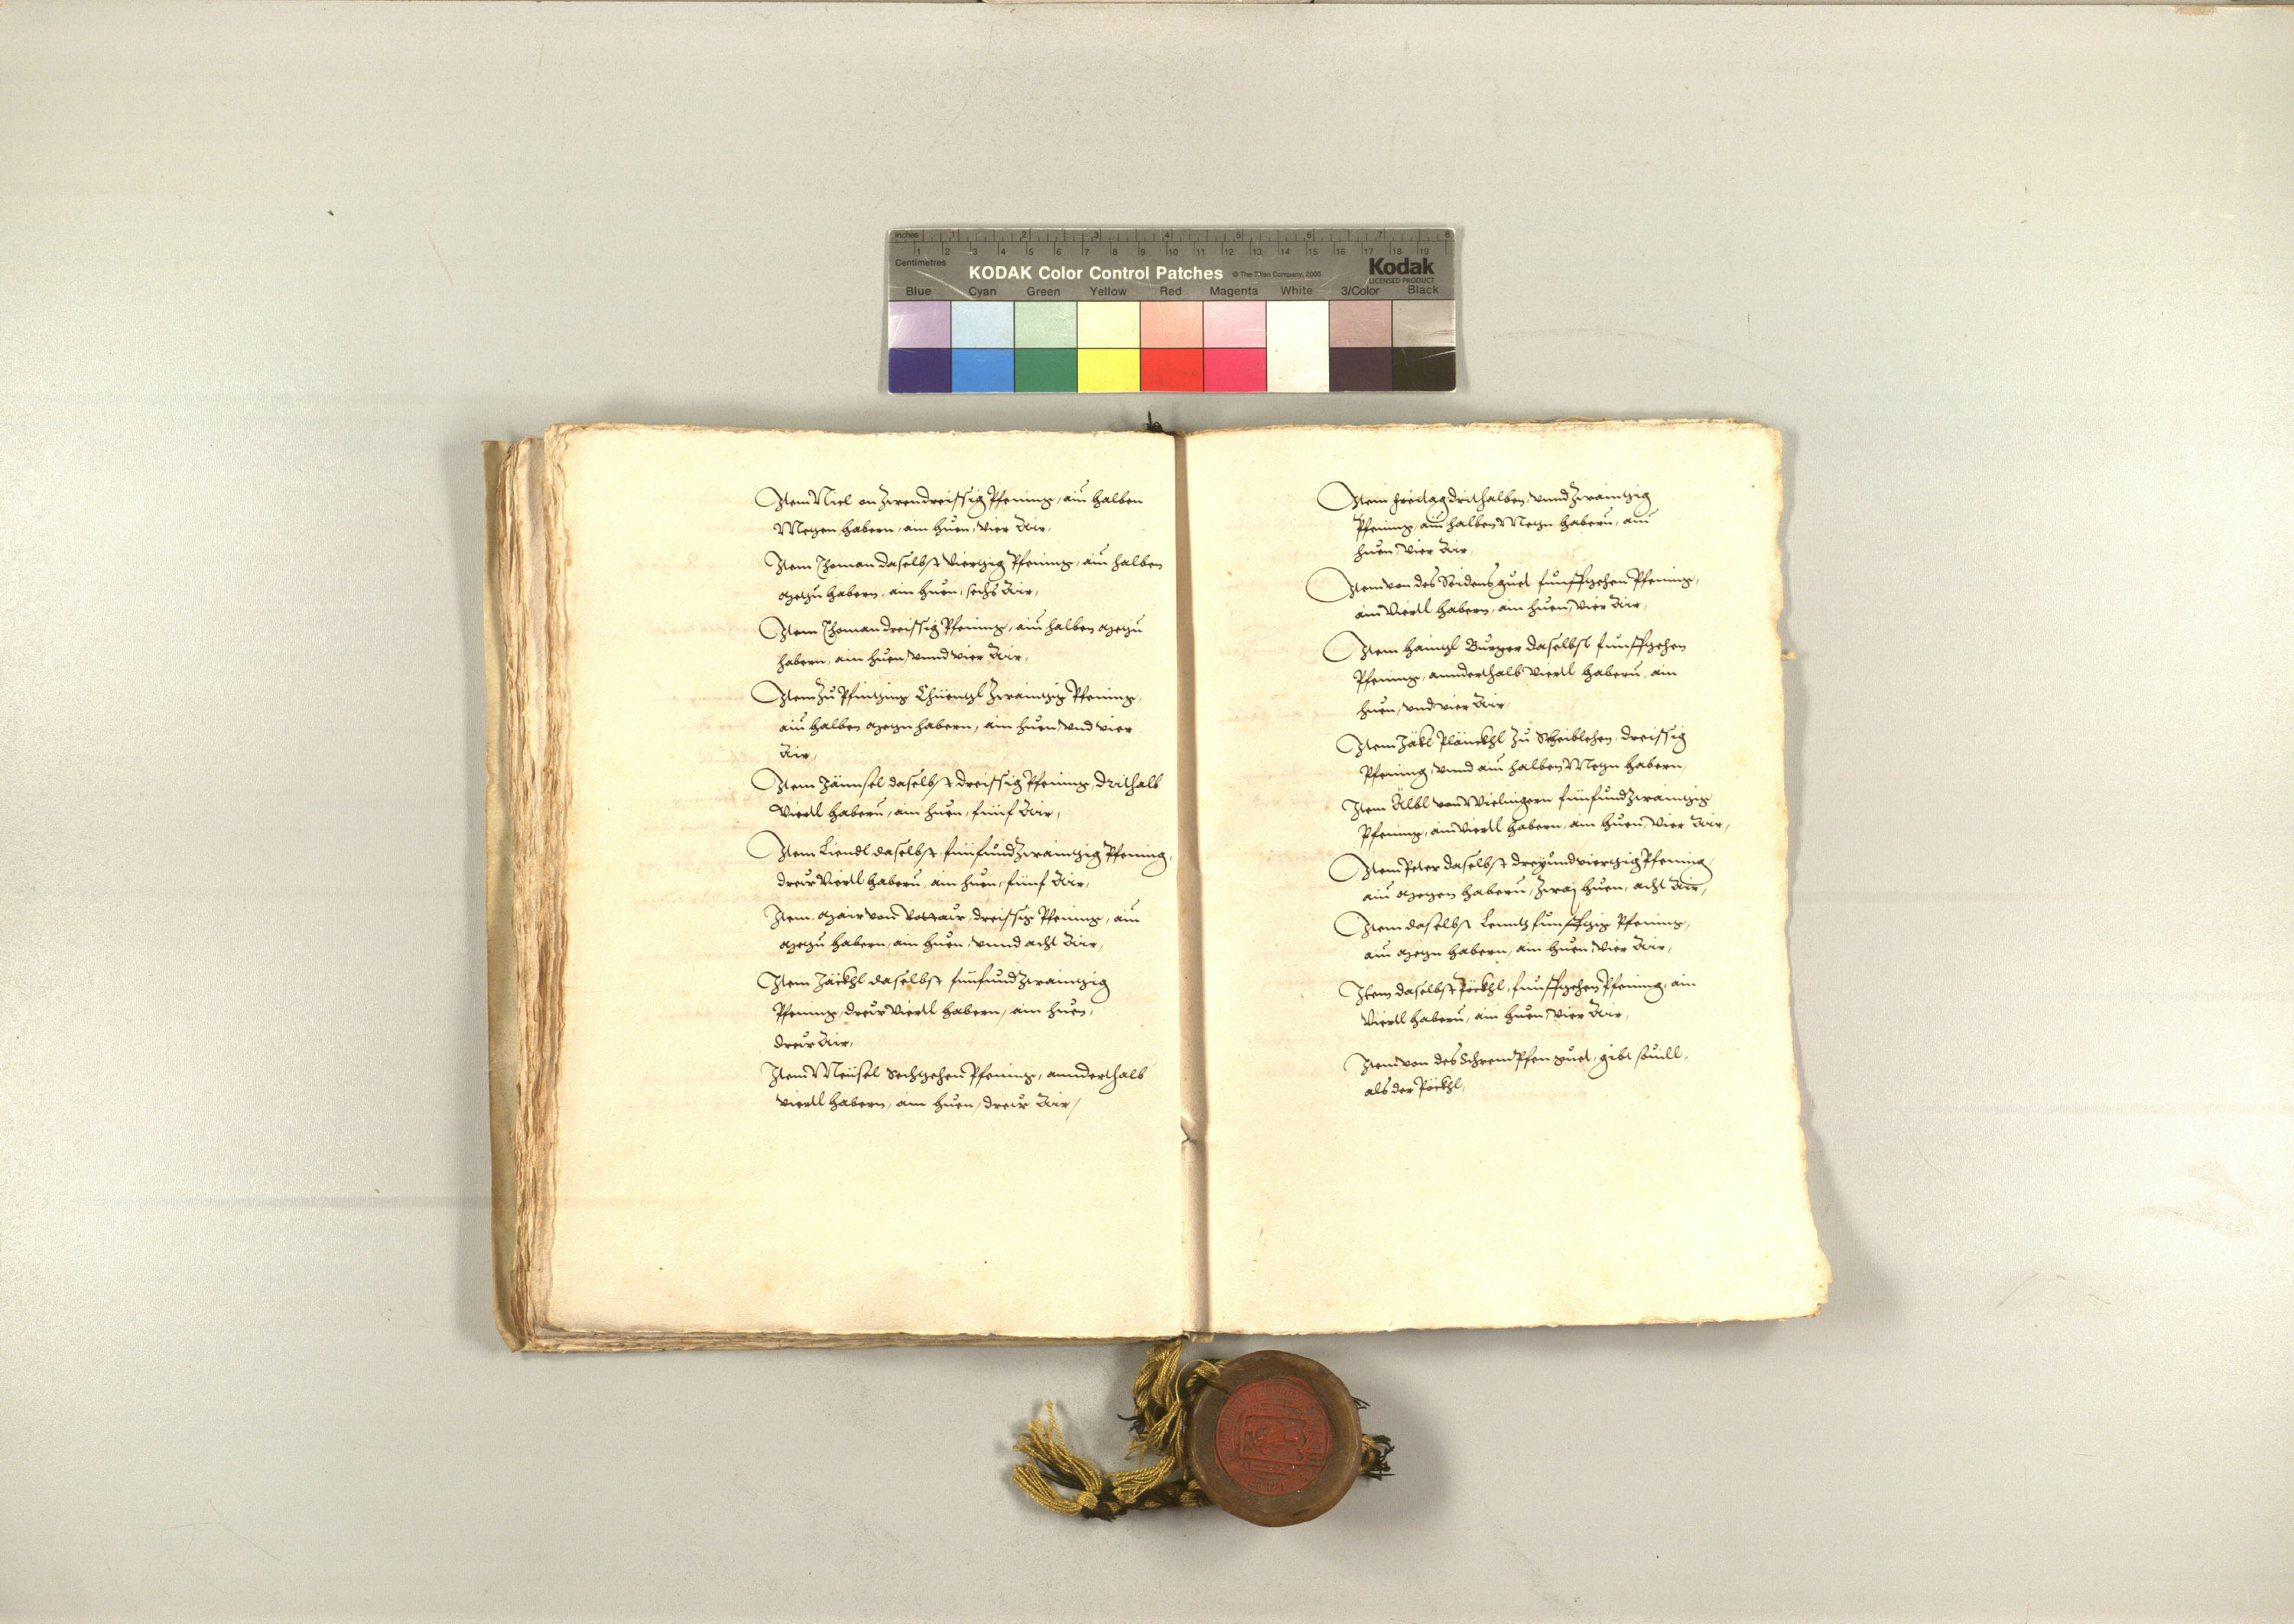 inches 1 2 3 4 5 6 7 8
1 2 3 4 5 6 7 8 9 10 11 12 13 14 15 16 17 18 19
Centimetres
KODAK Color Control Patches © The Tiffen Company, 2000 Kodak
LICENSED PRODUCT
Blue Cyan Green Yellow Red Magenta White 3/Color Black
Item Niel an zwendreissig Pfening, ain halben
Metzen habern, ain huen, vier Air,
Item Thoman daselbst viertzig Pfening, ain halben
metzn habern, ain huen, sechs Air,
Item Thoman dreissig Pfening, ain halben metzn
habern, ain huen, vnnd vier Air,
Item zu Pfintzing Chüentzl zwaintzig Pfening,
ain halben metzn habern, ain huen, vnd vier
Air,
Item Jännsel daselbst dreissig Pfening, drithalb
Viertl habern, ain huen, fünf Air,
Item Liendl daselbst fünfundzwaintzig Pfening,
dreir Viertl habern, ain huen, fünf Air,
Item Mair von dreissig Pfening, ain
metzn habern, ain huen, vnnd acht Air,
Item Jäckhl daselbst fünfundzwaintzig
Pfening, dreir Viertl habern, ain huen,
dreir Air,
Item Meüsel Sechzehen Pfening, annderthalb
viertl habern, ain huen, dreir Air,
Item freitag drithalben, vnnd zwaintzig
Pfening, ain halben Metzn habern, ain
huen, vier Air,
Item von des Seidens guet funffzehen Pfening,
ain Viertl habern, ain huen, vier Air,
Item haintzl Burger daselbst funffzehen
Pfening, annderthalb Viertl habern, ain
huen, vnd vier Air,
Item Jäkl Plänckhl zu Scheiblehen, dreissig
Pfening, vnnd ain halben Metzn habern,
Item Älbl von Wielingern fünfundzwaintzig
Pfening, ain Viertl habern, ain huen, vier Air,
Item Peter daselbst dreyundviertzig Pfening,
ain metzen habern, zwaj huen, acht Air,
Item daselbst Lenntz funffzig Pfening,
ain metzn habern, ain huen, vier Air,
Item daselbst Pöckhl, funffzehen Pfening, ain
Viertl habern, ain huen, vier Air,
Item von des guet, gibt souill,
als der Pöckhl,